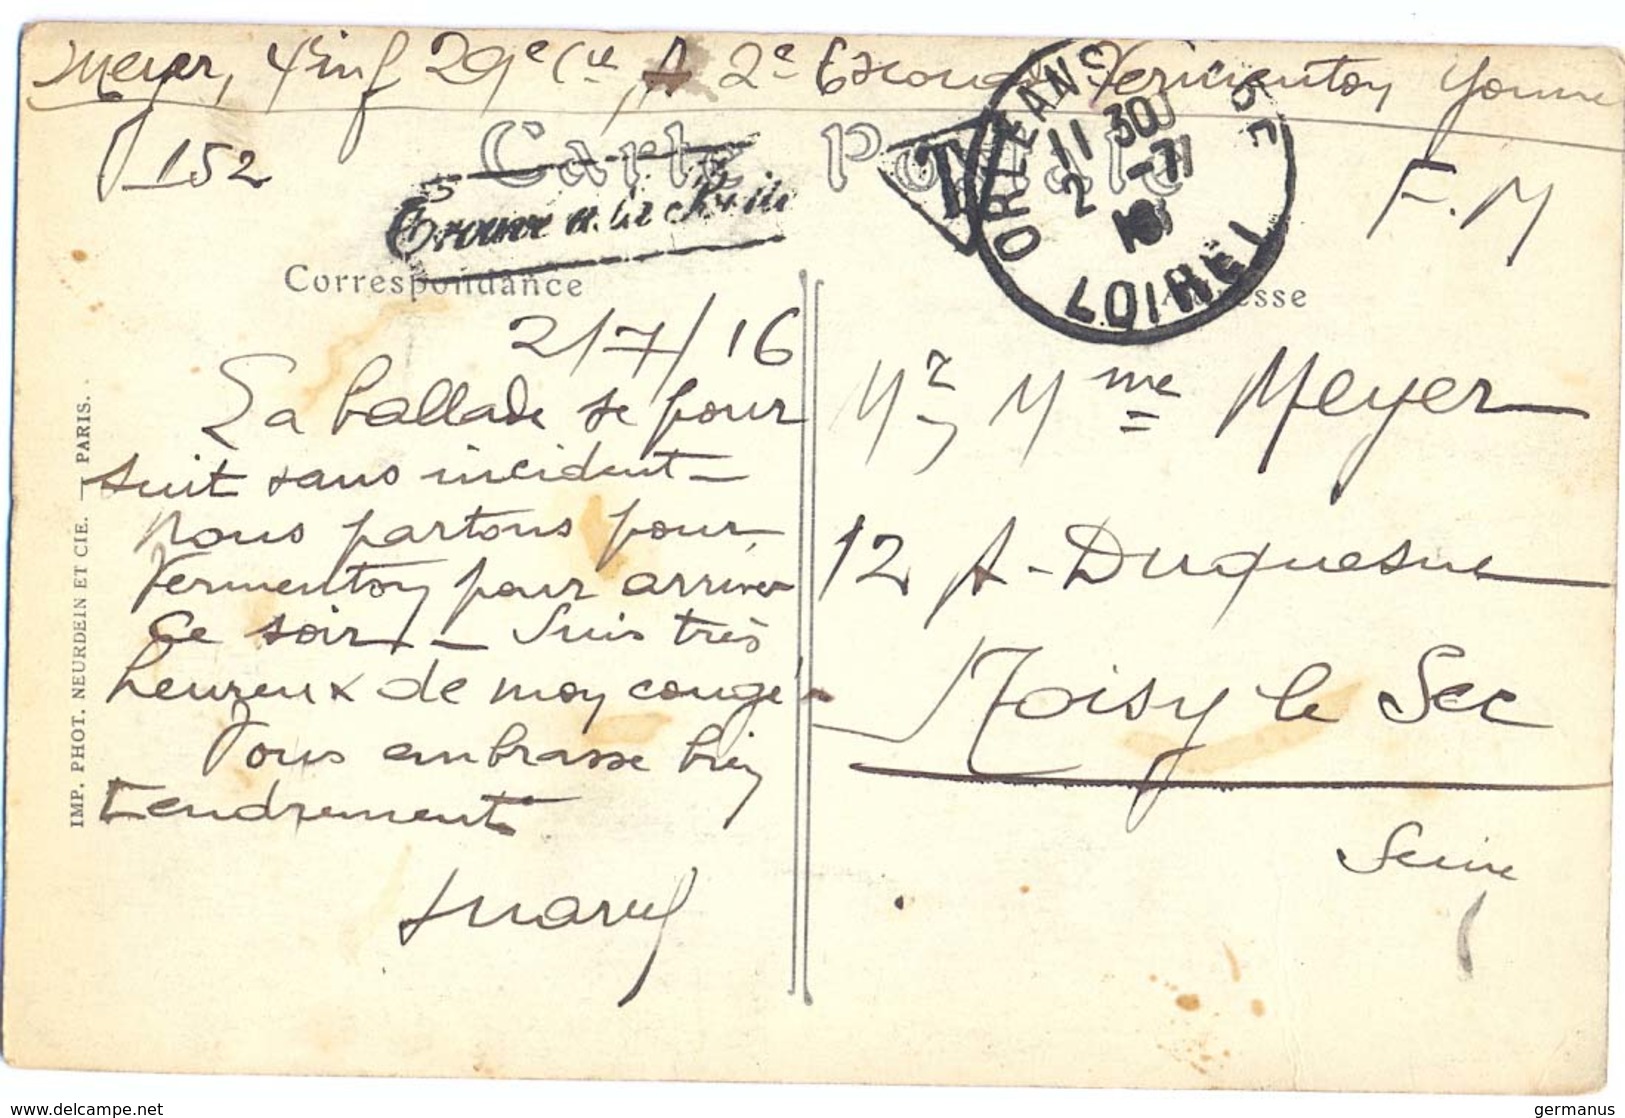 Meyer, 4 inf 29e Cie, A 2e Escouade Vermenton Yonne
152
Carte Postale
F.M
Trouvé à la Boîte
T
ORLEANS GARE
11 30
2 -7
16
LOIRET
Correspondance
Adresse
2/7/16
La ballade se pour
suit sans incident -
Nous partons pour
Vermenton pour arriver
ce soir - Suis très
heureux de mon congé
Vous embrasse bien
tendrement
Marcel
Mr Mme Meyer
12 A - Duquesne
Noisy le Sec
Seine
IMP. PHOT. NEURDEIN ET CIE. — PARIS.
delcampe.net
germanus